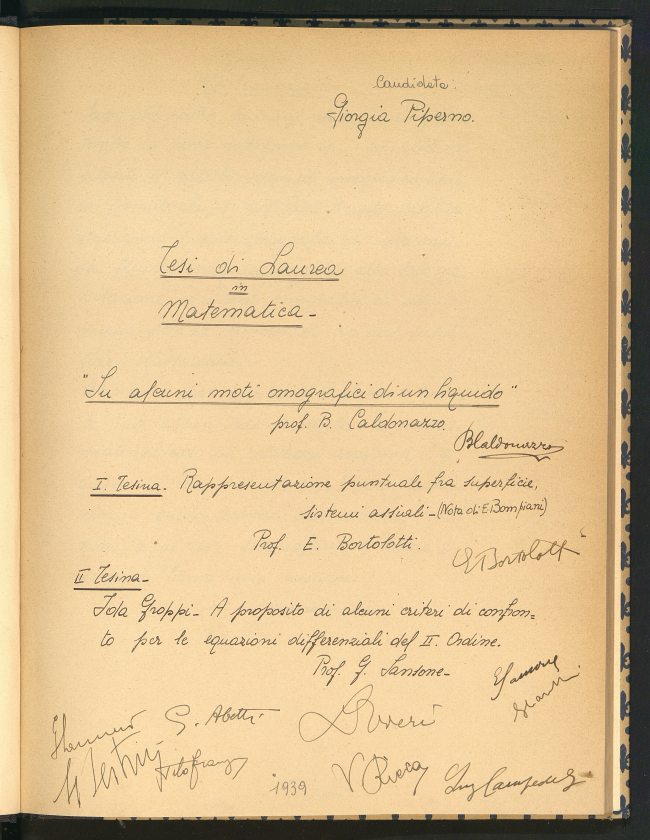 Candidata:
Giorgia Piperno.
Tesi di Laurea
in
Matematica -
"Su alcuni moti omografici di un liquido"
prof. B. Caldonazzo.
BCaldonazzo
I. Tesina. Rappresentazione puntuale fra superficie,
sistemi assiali - (Nota di E. Bompiani)
Prof. E. Bortolotti.
EBortolotti
II Tesina -
Ida Groppi - A proposito di alcuni criteri di confron=
to per le equazioni differenziali del II. Ordine.
Prof. G. Sansone -
GSansone
G. Abetti
V Ricca
1939